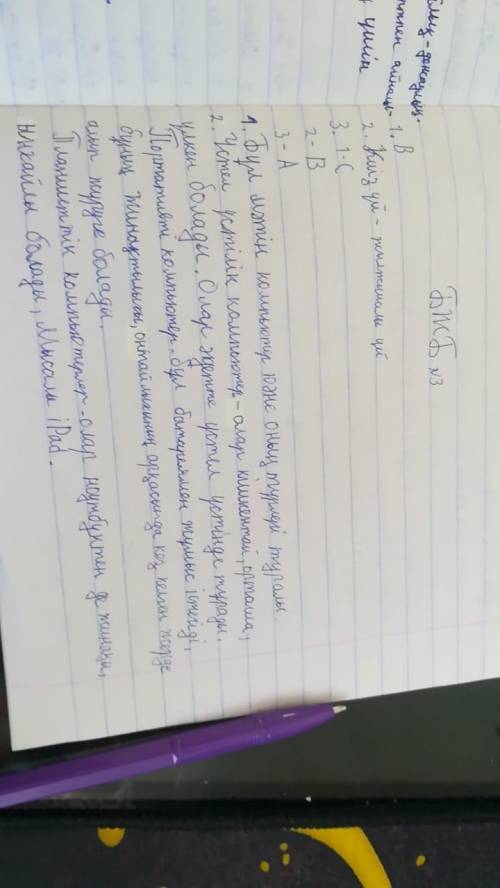 БЖБ №3
1. В
2. Киіз үй - жылжымалы үй
3. 1-С
2- В
3 - А
1. Бұл мәтін компьютер және оның түрлері туралы
2. Үстел үстілік компьютер - олар кішкентай, орташа,
үлкен болады. Олар әдетте үстел үстінде тұрады.
Портативті компьютер - бұл батареямен жұмыс істейді,
бұның жинақтылығы, оңтайлығының арқасында кез келген жерде
алып жүруге болады.
Планшеттік компьютерлер - олар ноутбуктен де жинақы,
ыңғайлы болады, Мысалы iPad.